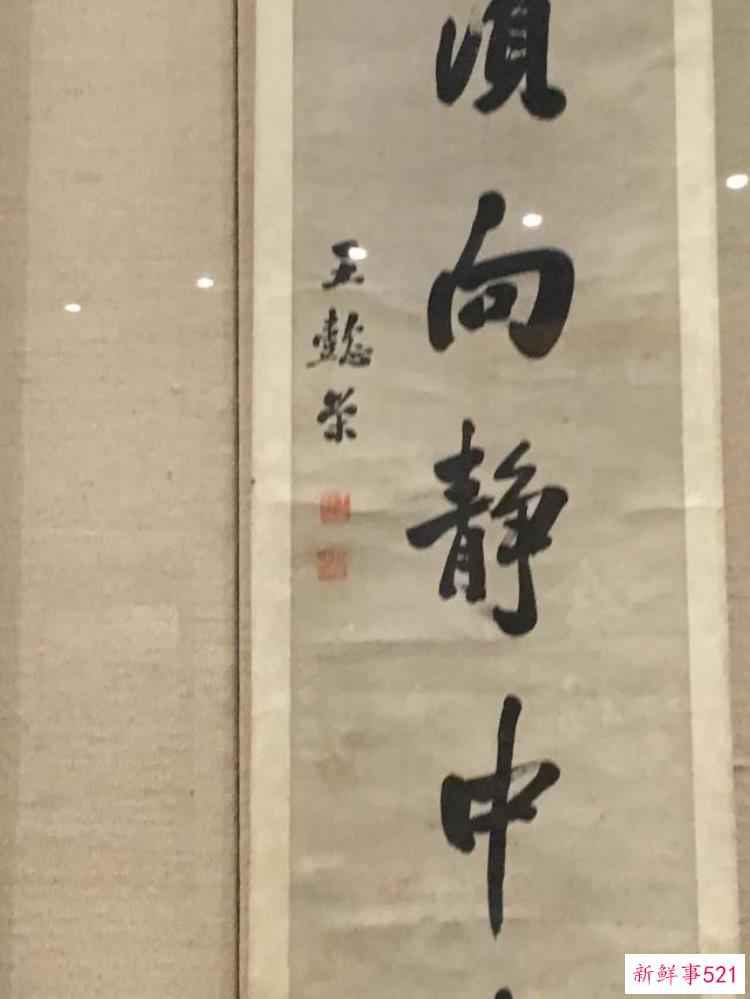 須向静中
王懿榮
新鲜事521